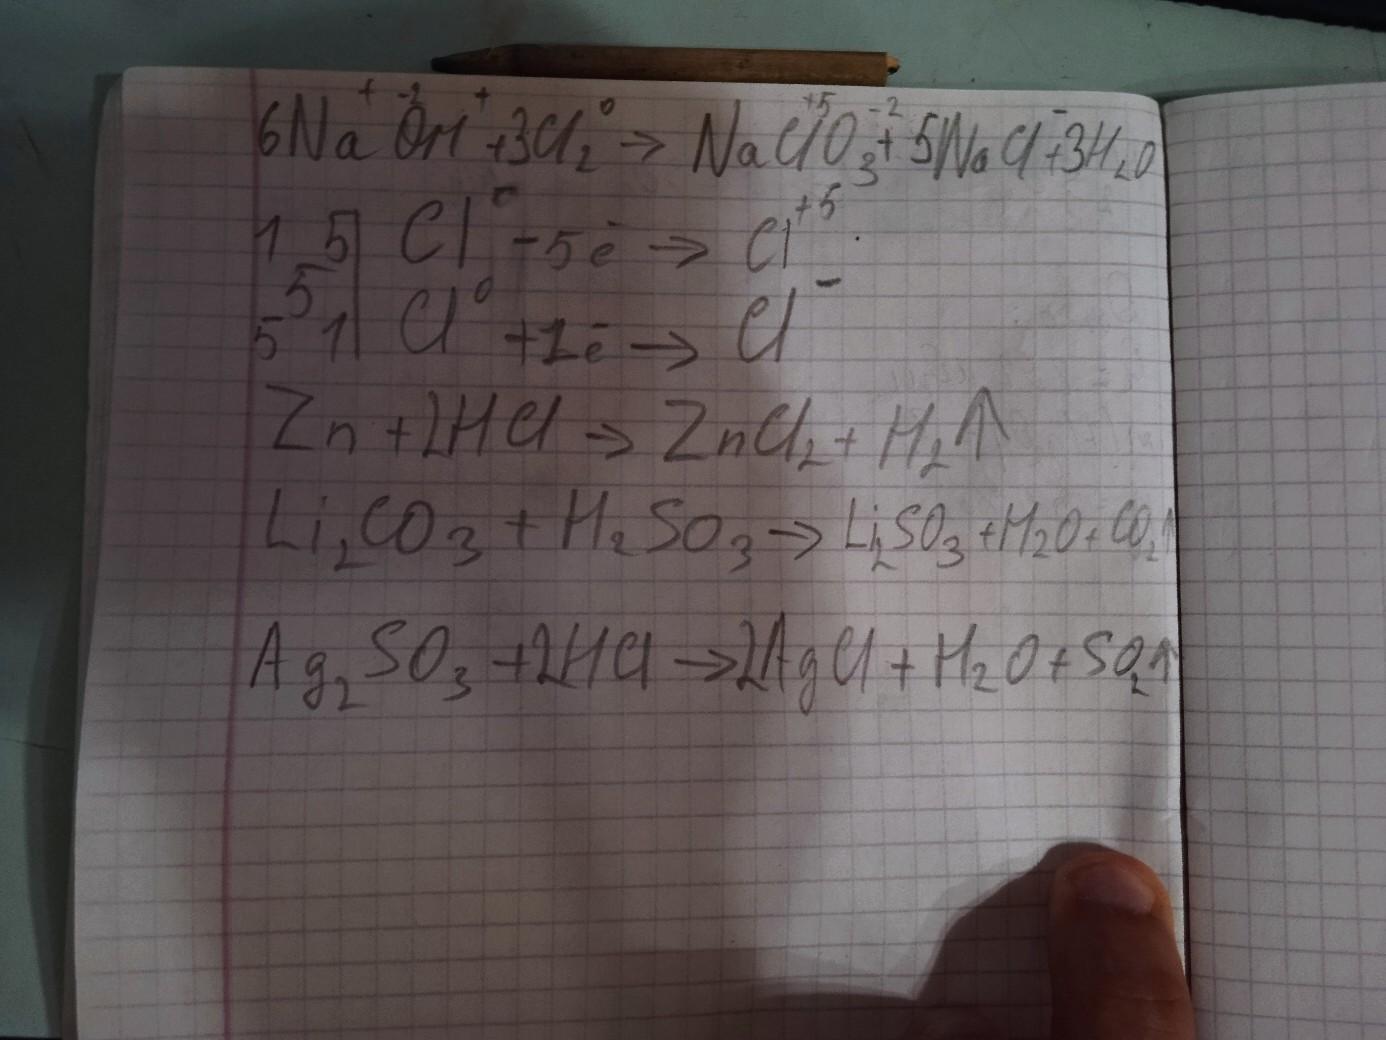 6Na⁺O⁻²H⁺ + 3Cl₂⁰ → NaCl⁺⁵O₃⁻² + 5NaCl⁻ + 3H₂O
1 5| Cl⁰ - 5ē → Cl⁺⁵
5
5 1| Cl⁰ + 1ē → Cl⁻
Zn + 2HCl → ZnCl₂ + H₂↑
Li₂CO₃ + H₂SO₃ → Li₂SO₃ + H₂O + CO₂↑
Ag₂SO₃ + 2HCl → 2AgCl + H₂O + SO₂↑